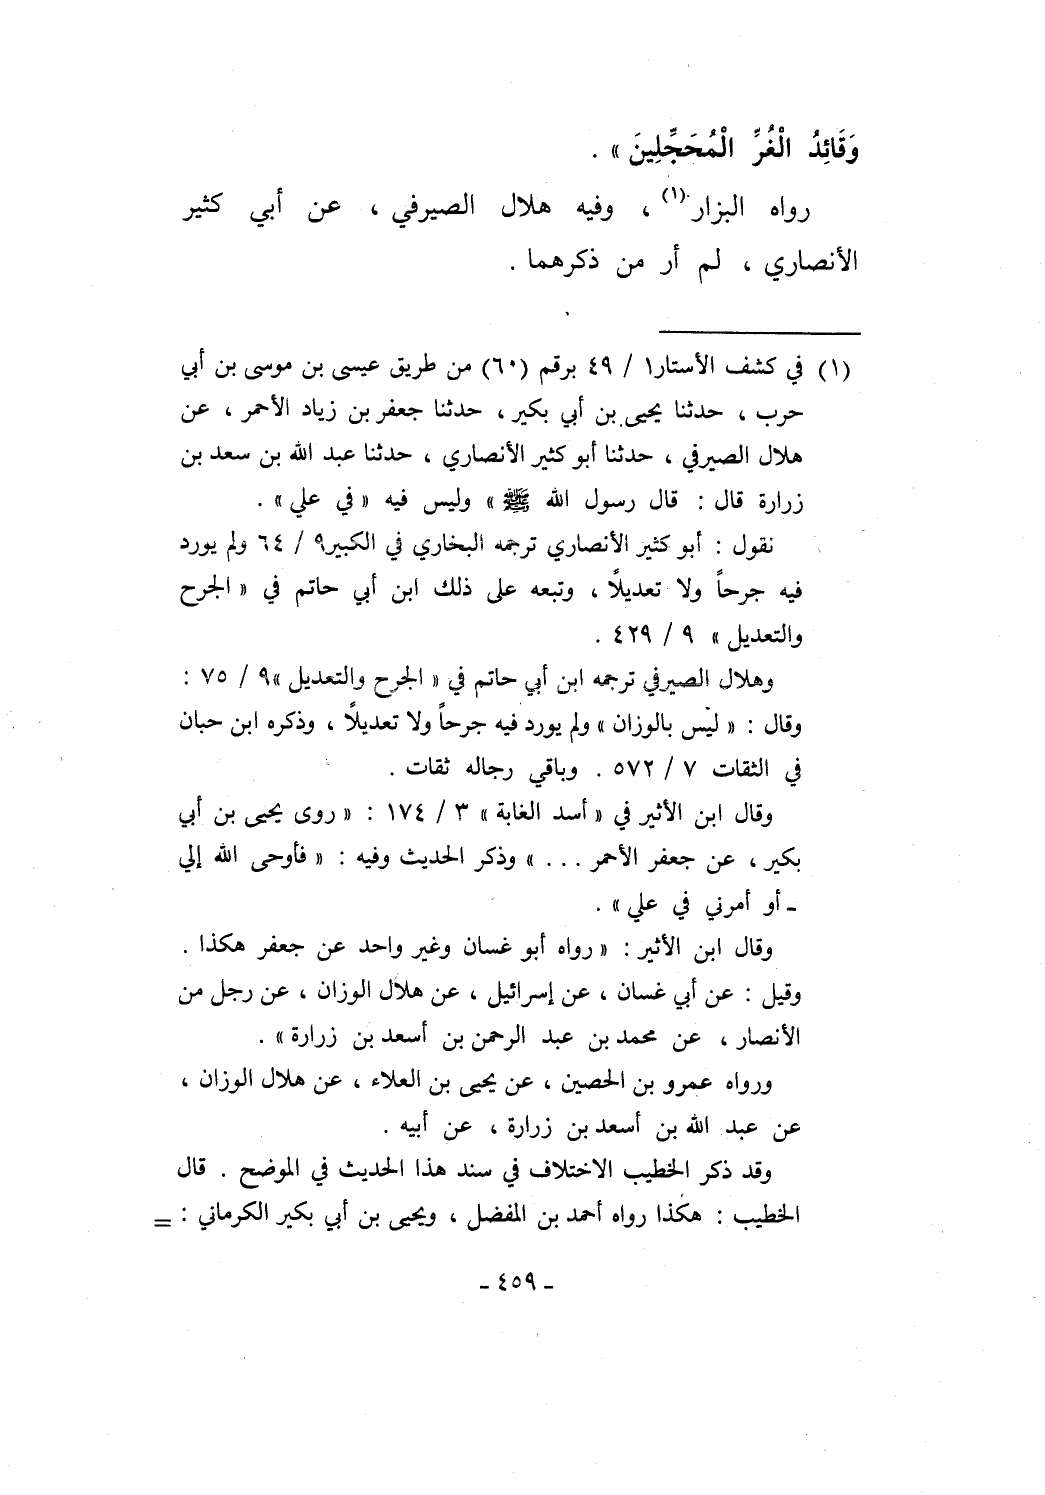 وَقَائِدُ الْغُرِّ الْمُحَجِّلِينَ » .
رواه البزار (١) ، وفيه هلال الصيرفي ، عن أبي كثير
الأنصاري ، لم أر من ذكرهما .
(١) في كشف الأستار١ / ٤٩ برقم (٦٠) من طريق عيسى بن موسى بن أبي
حرب ، حدثنا يحيى بن أبي بكير ، حدثنا جعفر بن زياد الأحمر ، عن
هلال الصيرفي ، حدثنا أبو كثير الأنصاري ، حدثنا عبد الله بن سعد بن
زرارة قال : قال رسول الله ﷺ » وليس فيه « في علي » .
نقول : أبو كثير الأنصاري ترجمه البخاري في الكبير٩ / ٦٤ ولم يورد
فيه جرحاً ولا تعديلاً ، وتبعه على ذلك ابن أبي حاتم في « الجرح
والتعديل » ٩ / ٤٢٩ .
وهلال الصيرفي ترجمه ابن أبي حاتم في « الجرح والتعديل »٩ / ٧٥ :
وقال : « ليس بالوزان » ولم يورد فيه جرحاً ولا تعديلاً ، وذكره ابن حبان
في الثقات ٧ / ٥٧٢ . وباقي رجاله ثقات .
وقال ابن الأثير في « أسد الغابة » ٣ / ١٧٤ : « روى يحيى بن أبي
بكير ، عن جعفر الأحمر ... » وذكر الحديث وفيه : « فأوحى الله إلي
ـ أو أمرني في علي » .
وقال ابن الأثير : « رواه أبو غسان وغير واحد عن جعفر هكذا .
وقيل : عن أبي غسان ، عن إسرائيل ، عن هلال الوزان ، عن رجل من
الأنصار ، عن محمد بن عبد الرحمن بن أسعد بن زرارة » .
ورواه عمرو بن الحصين ، عن يحيى بن العلاء ، عن هلال الوزان ،
عن عبد الله بن أسعد بن زرارة ، عن أبيه .
وقد ذكر الخطيب الاختلاف في سند هذا الحديث في الموضح . قال
الخطيب : هكذا رواه أحمد بن المفضل ، ويحيى بن أبي بكير الكرماني : =
ـ ٤٥٩ ـ